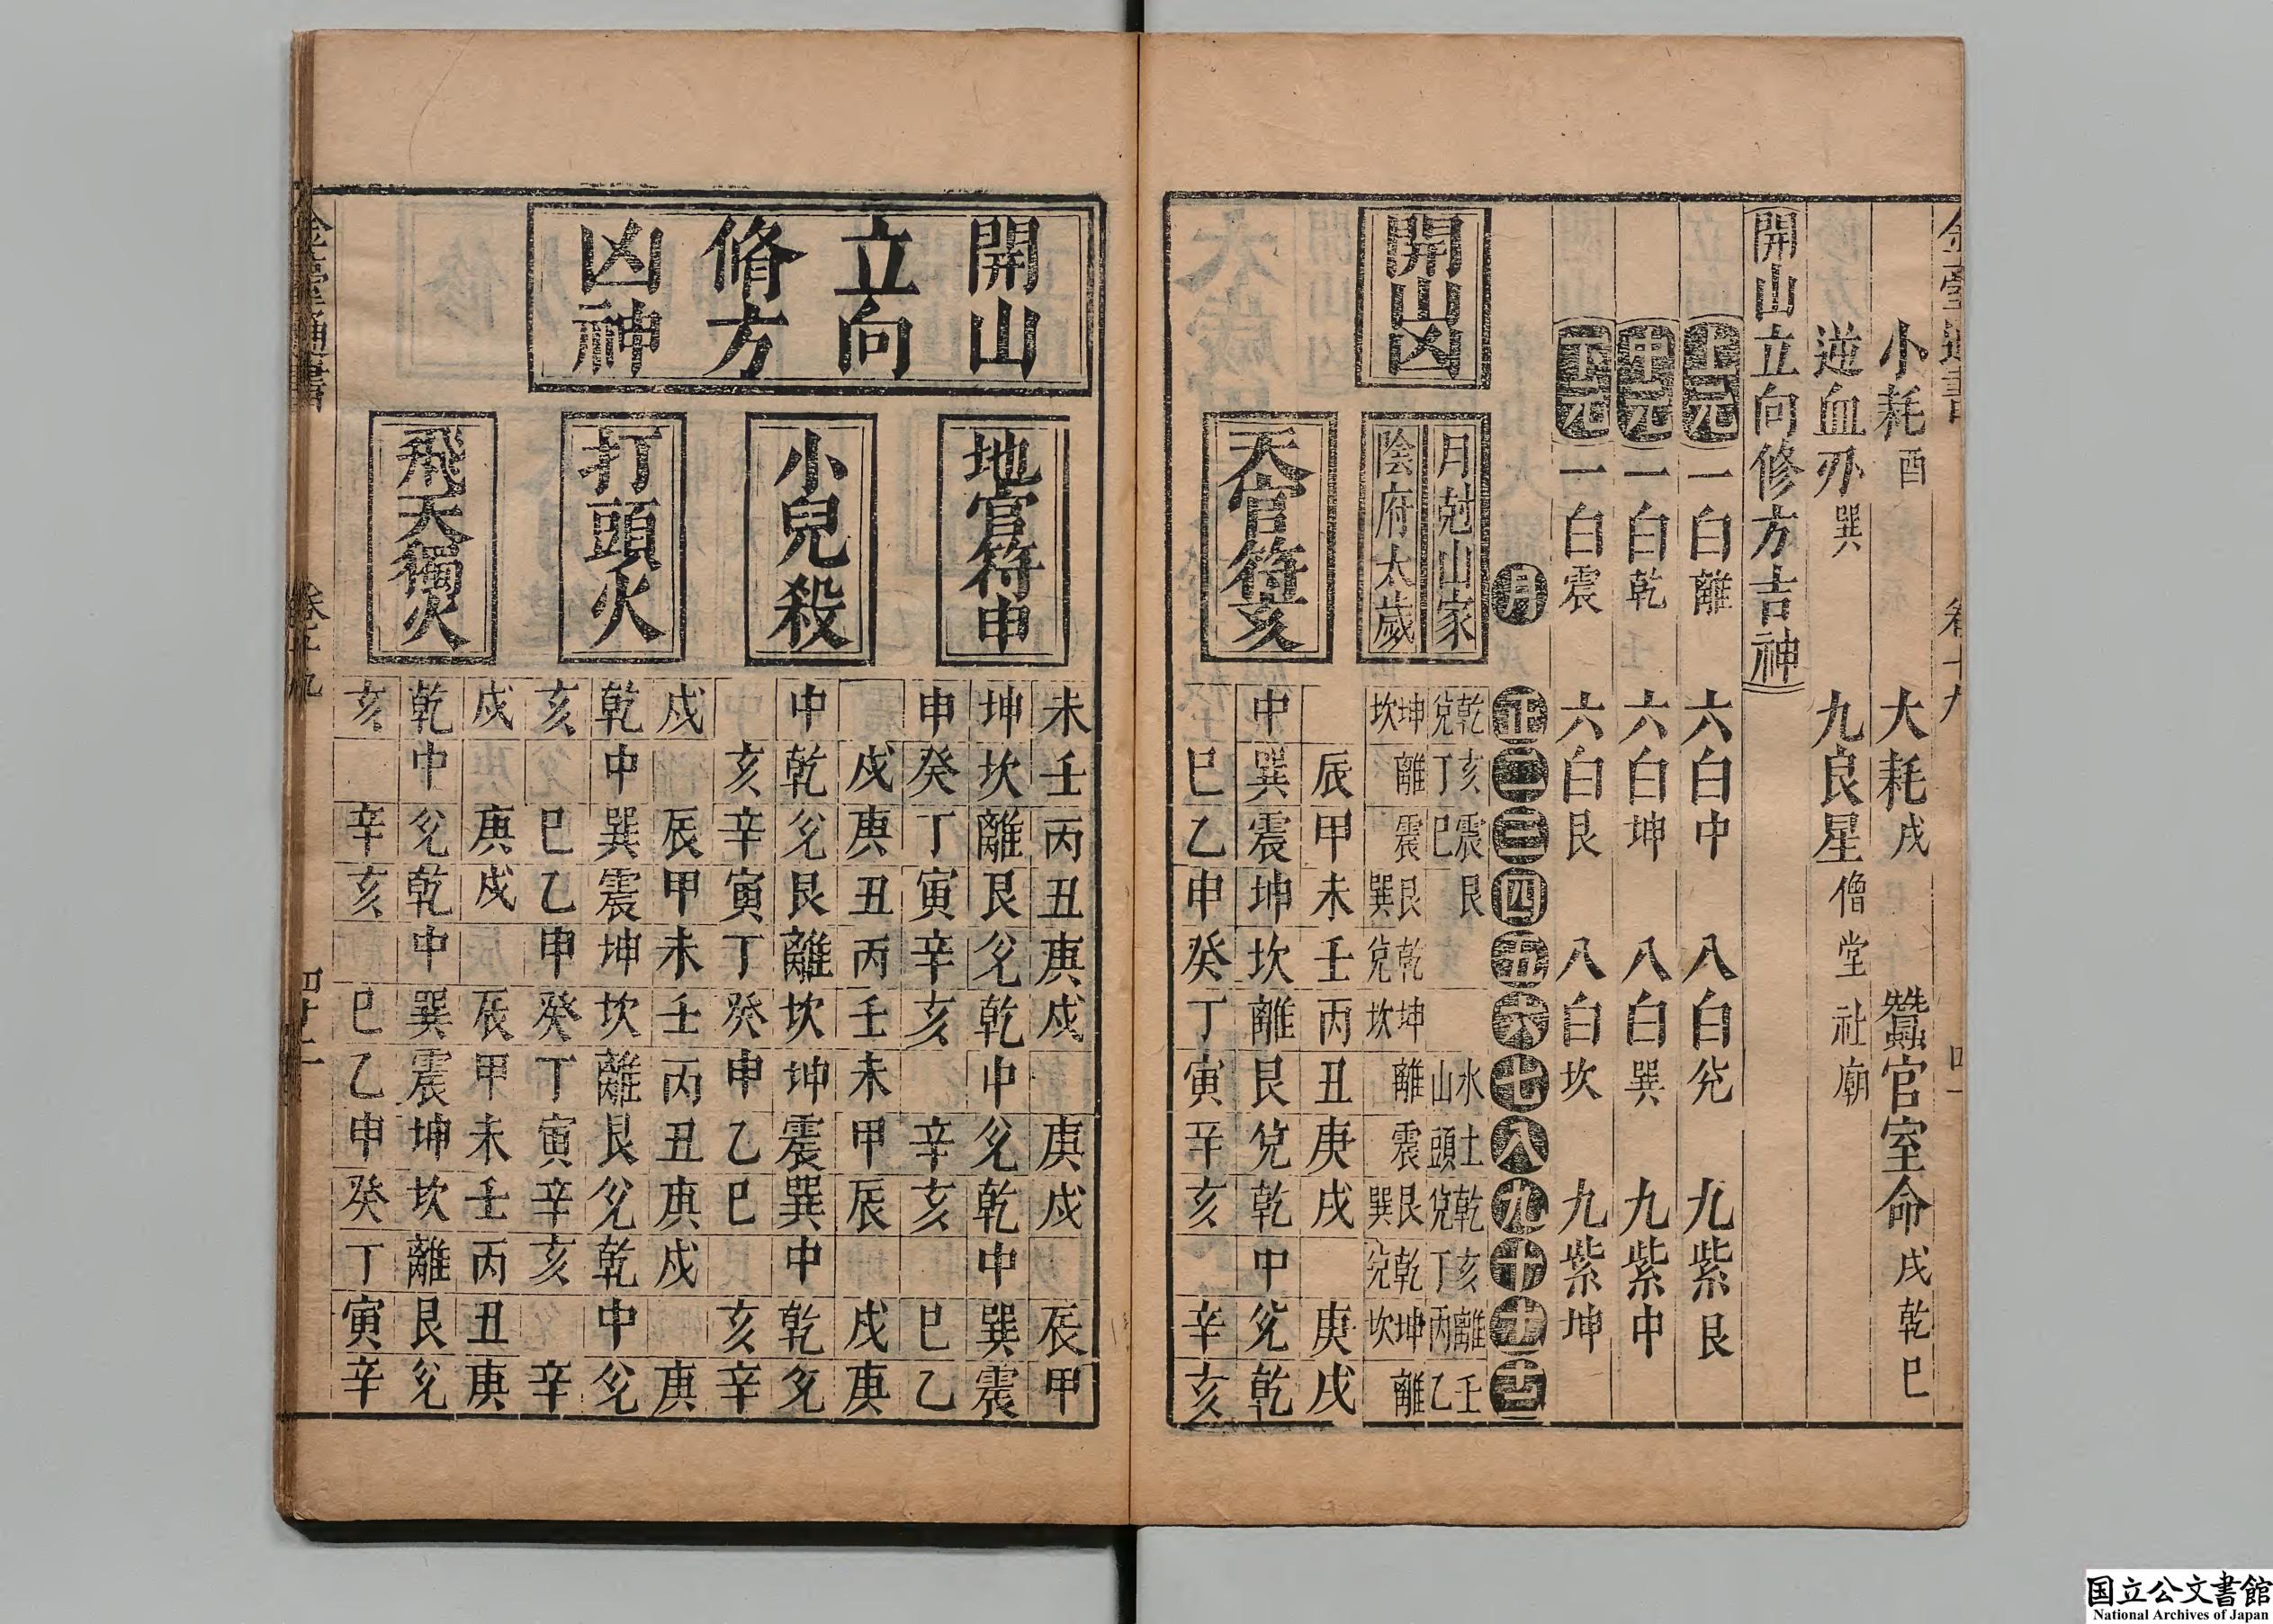 小耗酉 大耗戌 蠶官室命戌乾巳
逆血刃巽 九良星僧堂社廟
開山立向修方吉神
上元 一白離 六白中 八白兊 九紫艮
中元 一白乾 六白坤 八白巽 九紫中
下元 一白震 六白艮 八白坎 九紫坤
月 正 二 三 四 五 六 七 八 九 十 十一 十二
開山凶
月尅山家 乾兊 亥丁 震巳 艮 水山 土頭 乾兊 亥丁 離丙 壬乙
陰府太歲 坤坎 離 震 艮巽 乾兊 坤坎 離 震 艮巽 乾兊 坤坎 離
天官符亥
辰 甲 未 壬 丙 丑 庚 戌 庚 戌
中 巽 震 坤 坎 離 艮 兊 乾 中 兊 乾
巳 乙 申 癸 丁 寅 辛 亥 辛 亥
開山立向脩方凶神
地官符申
未 壬 丙 丑 庚 戌 庚 戌 辰 甲
坤 坎 離 艮 兊 乾 中 兊 乾 中 巽 震
申 癸 丁 寅 辛 亥 辛 亥 巳 乙
小兒殺
戌 庚 丑 丙 壬 未 甲 辰 戌 庚
中 乾 兊 艮 離 坎 坤 震 巽 中 乾 兊
亥 辛 寅 丁 癸 申 乙 巳 亥 辛
打頭火
戌 辰 甲 未 壬 丙 丑 庚 戌 庚
乾 中 巽 震 坤 坎 離 艮 兊 乾 中 兊
亥 巳 乙 申 癸 丁 寅 辛 亥 辛
飛天獨火
戌 庚 戌 辰 甲 未 壬 丙 丑 庚
乾 中 兊 乾 中 巽 震 坤 坎 離 艮 兊
亥 辛 亥 巳 乙 申 癸 丁 寅 辛
国立公文書館
National Archives of Japan